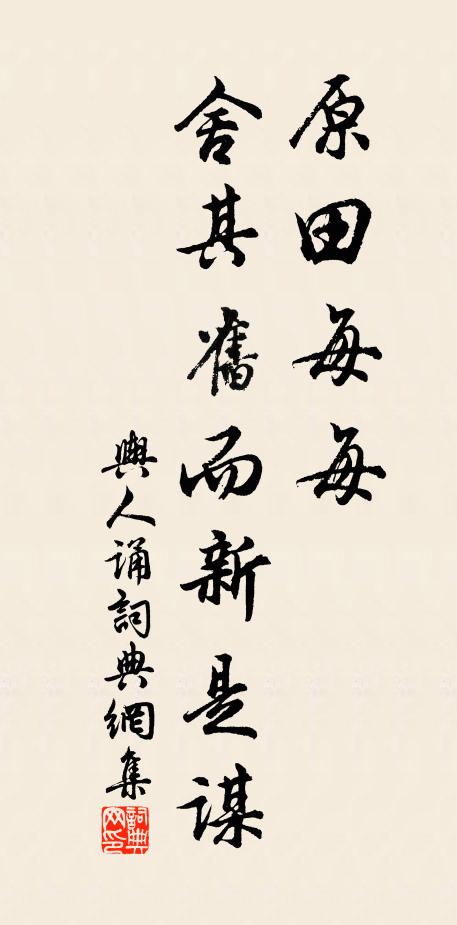 原田每每
舍其舊而新是謀
輿人誦詞典網集
詞典
网印